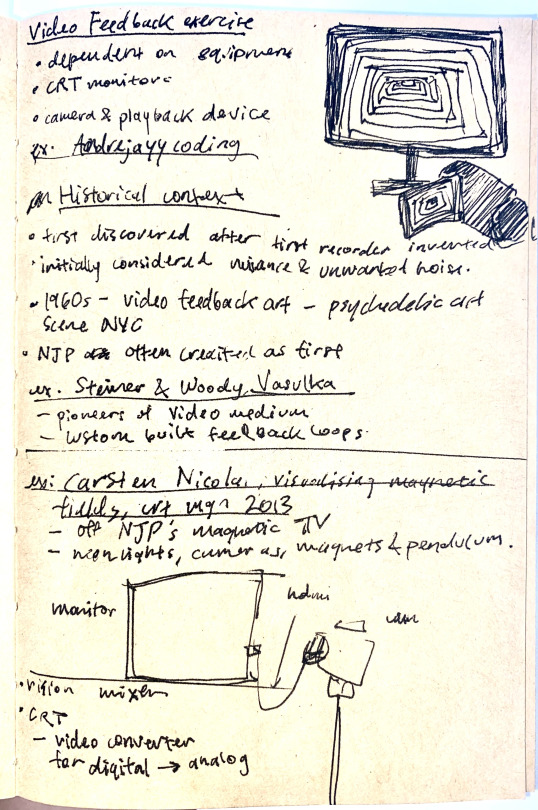 Video Feedback exercise
• dependent on equipment
• CRT monitors
• camera & playback device
ex. Andrejayy coding
Historical context
• first discovered after first recorder invented
• initially considered nuisance & unwanted noise.
• 1960s – video feedback art – psychedelic art
scene NYC
• NJP often credited as first
ex. Steiner & Woody Vasulka
– pioneers of video medium
– custom built feedback loops.
ex: Carsten Nicolai, visualising magnetic
fields, crt mgn 2013
– off NJP's magnetic TV
– neon lights, cameras, magnets & pendulum.
monitor
hdmi
cam
• vision mixer
• CRT
– video converter
for digital → analog